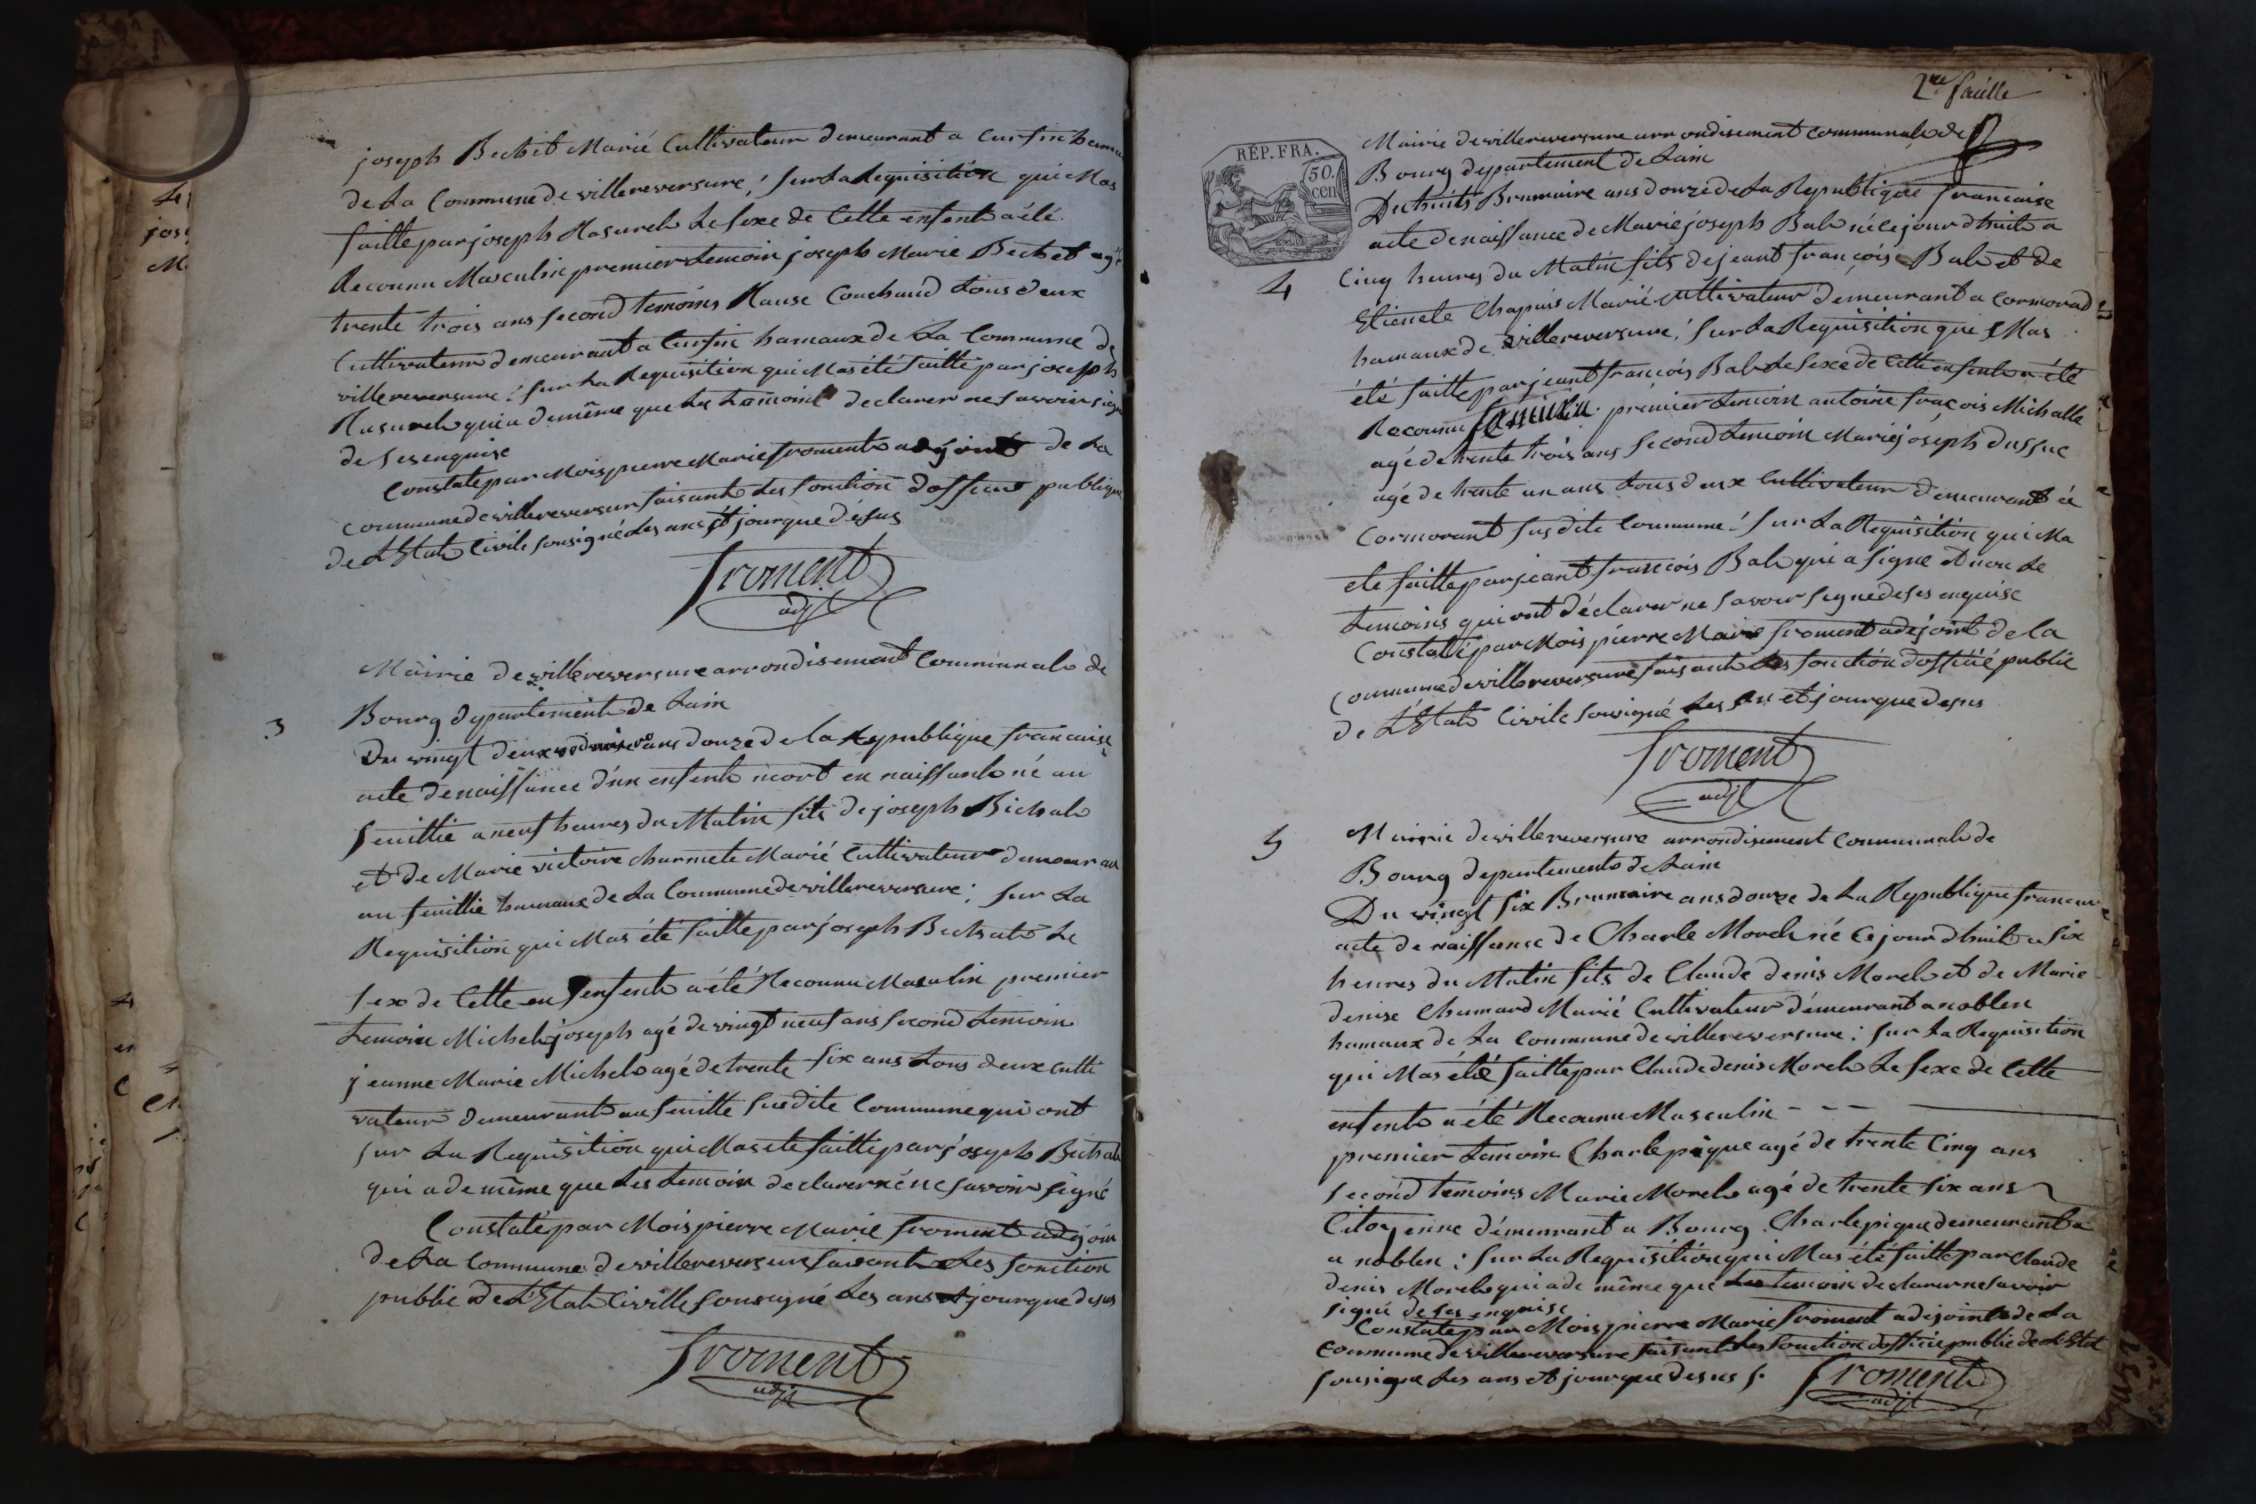 joseph Bechet Marié Cultivateur demeurant a Cursin hamau
de La Commune de villereversure ; sur La Requisition qui Mas
faitte par joseph Rasurel Le sexe de Cette enfent a été
Reconnu Masculin premier temoin joseph Marie Bechet agé
trente trois ans second temoins Couchaud tous deux
Cultivateur demeurant a Cursin hamaux de La Commune de
villereversure ; sur La Requisition qui Mas été faitte par joseph
Rasurel qui a de même que Les temoins declarer ne savoir signe
de ses enquise
Constate par Mois pierre Marie froment adjoint de La
Commune de villereversure faisant Les fonction publique
de L'Etat Civile sousigné Les ans et jour que désus
froment
adjt
Mairie de villereversure arrondisement Communale de
3
Bourg departement de Lain
Du vingt deux ans douze de la Republique francaise
acte de naissance d'un enfent mort en naissant né au
feuillie a neuf heures du Matin fils de joseph Bichat
et de Marie victoire charmete Marié Cultivateur demeuran
au feuillie hamaux de La Commune de villereversure ; sur La
Requisition qui Mas été faitte par joseph Le
sex de Cette en enfent a été Reconnu Masculin premier
temoin Michel joseph agé de vingt neuf ans second temoin
jeanne Marie Michel agé de trente six ans tous deux culti
vateur demeurant au feuille susdite Commune qui ont
sur La Requisition qui Mas ete faitte par joseph
qui a de même que Les temoin declarer ne savoir signé
Constaté par Mois pierre Marie froment adjoin
de La Commune de villereversure faisant Les fonction
public de L'Etat Civille sousigné Les ans et jour que desus
froment
adjt
2me faille
RÉP. FRA.
50.
cen
Mairie de villereversure arrondisement Communale de
Bourg departement de Lain
Du huit Brumaire ans douze de La Republique francaise
acte de naissance de Marie joseph Bal né le jour dhuit a
4
Cinq heures du Matin fils de jeant françois Bal et de
Etiennete Chapuis Marié Cultivateur demeurant a Cormorad
hamaux de villereversure ; sur La Requisition qui Mas
été faitte par jeant francois Bal Le sexe de Cette enfent a été
Reconnu féminin premier temoin antoine fraçois Michalle
agé de trente trois ans second temoin Marie joseph dussuc
agé de trente un ans tous deux Cultivateur demeurant a
Cormorant susdite Commune ; sur La Requisition qui Ma
ete faitte par jeant francois Bal qui a signe et non Le
temoins qui ont déclarer ne savoir signe de ses enquise
Constatté par Mois pierre Marie froment adejoint de la
Commune de villereversure faisant Les fonction public
de L'Etat Civile sousigné Les an et jour que desus
froment
adjt
5
Mairie de villereversure arrondisement Communale de
Bourg departemente de Lain
Du vingt six Brumaire ans douze de La Republique francai
acte de naissance de Charle Morel né le jour dhuit a six
heures du Matin fils de Claude denis Morel et de Marie
denise Chanard Marié Cultivateur démeurant a noblen
hamaux de La Commune de villereversure ; sur La Requisition
qui Mas été faitte par Claude denis Morel Le sexe de Cette
enfent a été Reconnu Masculin - - -
premier temoin Charle pique agé de trente Cinq ans
second temoins Marie Morel agé de trente six ans
Citoyenne démeurant a Bourg Charle pique demeurant a
a noblen ; sur La Requisition qui Mas été faitte par Claude
denis Morel qui a de même que Les temoin declarer ne savoir
signé de ses enquise
Constate par Mois pierre Marie froment adejoint de La
Commune de villereversure faisant Les fonction public de L'Etat
sousigne Les ans et jour que desus s.
froment
adjt